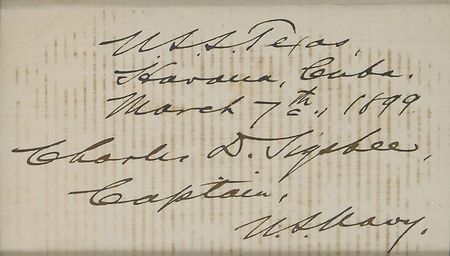 U.S.S. Texas,
Havana, Cuba.
March 7th, 1899
Charles D. Sigsbee,
Captain,
U.S. Navy.